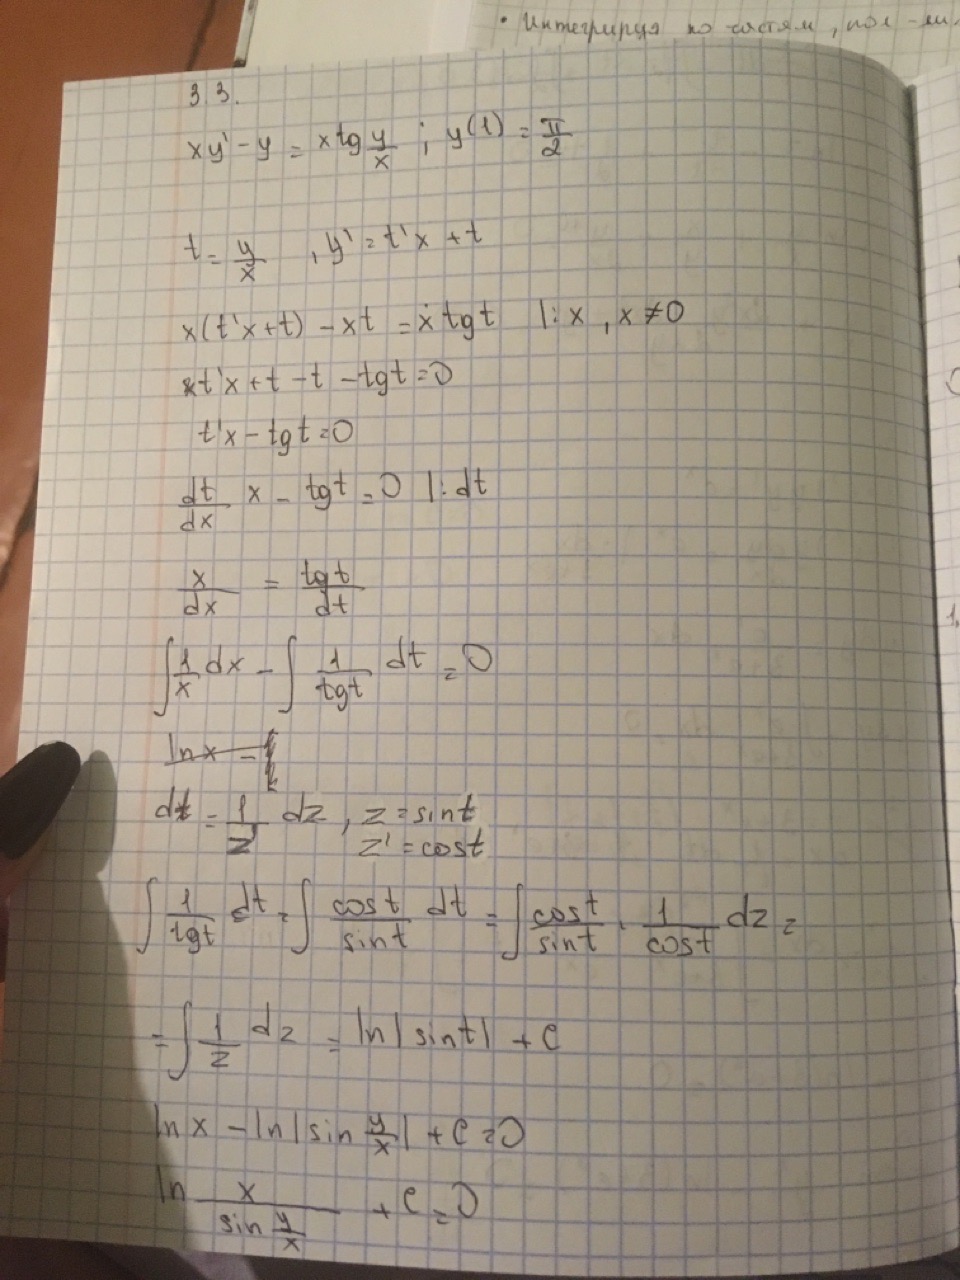 • Интегрируя по частям, пол
3.3.
xy' - y = x tg y/x ; y(1) = π/2
t = y/x , y' = t'x + t
x(t'x + t) - xt = x tg t |: x , x ≠ 0
t'x + t - t - tg t = 0
t'x - tg t = 0
dt/dx x - tg t = 0 |: dt
x/dx = tg t/dt
∫ 1/x dx - ∫ 1/tg t dt = 0
ln x -
dt = 1/z' dz , z = sin t
z' = cos t
∫ 1/tg t dt = ∫ cos t/sin t dt = ∫ cos t/sin t · 1/cos t dz =
= ∫ 1/z dz = ln|sin t| + C
ln x - ln|sin y/x| + C = 0
ln x/sin y/x + C = 0